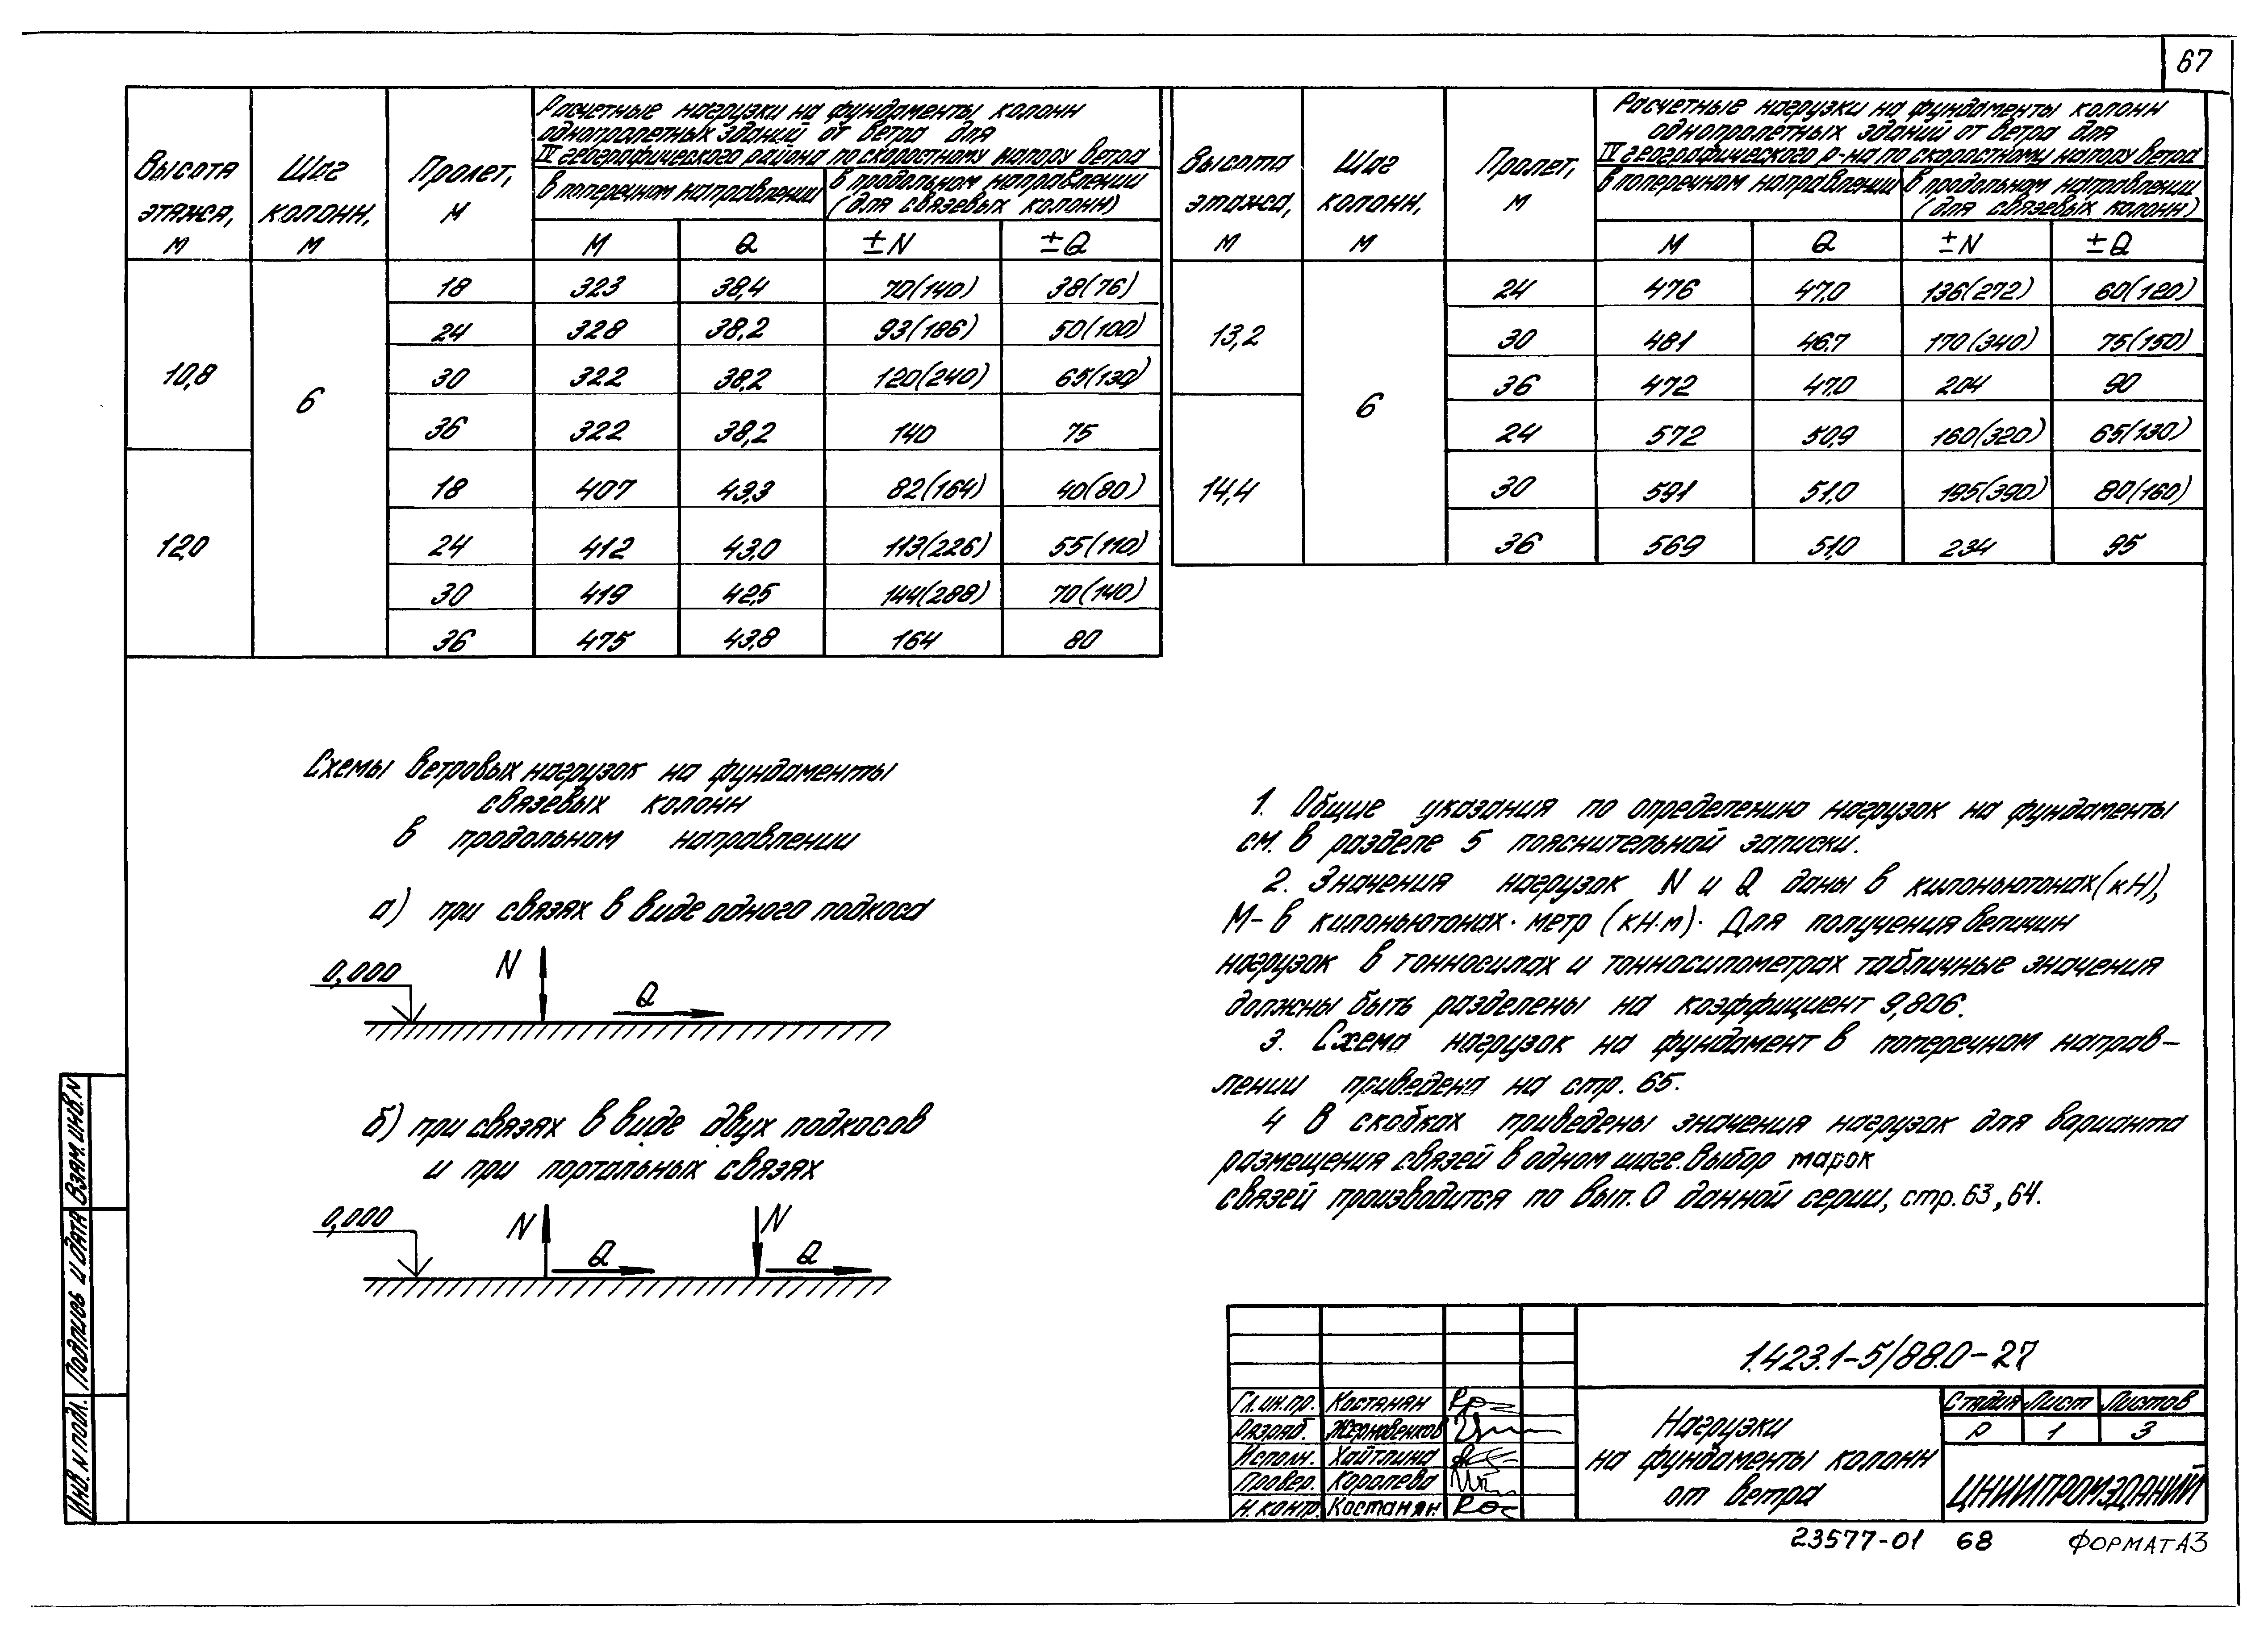 67
Высота этажа, м
Шаг колонн, м
Пролет, м
Расчетные нагрузки на фундаменты колонн
однопролетных зданий от ветра для
IV географического района по скоростному напору ветра
в поперечном направлении
в продольном направлении
(для связевых колонн)
M Q ±N ±Q
10,8 6
18 323 38,4 70(140) 38(76)
24 328 38,2 93(186) 50(100)
30 322 38,2 120(240) 65(130)
36 322 38,2 140 75
12,0
18 407 43,3 82(164) 40(80)
24 412 43,0 113(226) 55(110)
30 419 42,5 144(288) 70(140)
36 475 43,8 164 80
Высота этажа, м
Шаг колонн, м
Пролет, м
Расчетные нагрузки на фундаменты колонн
однопролетных зданий от ветра для
IV географического р-на по скоростному напору ветра
в поперечном направлении
в продольном направлении
(для связевых колонн)
M Q ±N ±Q
13,2 6
24 476 47,0 136(272) 60(120)
30 481 46,7 170(340) 75(150)
36 472 47,0 204 90
14,4
24 572 50,9 160(320) 65(130)
30 591 51,0 195(390) 80(160)
36 569 51,0 234 95
Схемы ветровых нагрузок на фундаменты
связевых колонн
в продольном направлении
а) при связях в виде одного подкоса
0,000 N Q
б) при связях в виде двух подкосов
и при портальных связях
0,000 N Q N Q
1. Общие указания по определению нагрузок на фундаменты
см. в разделе 5 пояснительной записки.
2. Значения нагрузок N и Q даны в килоньютонах(кН),
М- в килоньютонах·метр (кН·м). Для получения величин
нагрузок в тонносилах и тонносилометрах табличные значения
должны быть разделены на коэффициент 9,806.
3. Схема нагрузок на фундамент в поперечном направ-
лении приведена на стр. 65.
4 В скобках приведены значения нагрузок для варианта
размещения связей в одном шаге. Выбор марок
связей производится по Вып. 0 данной серии, стр. 63, 64.
Инв. N подл. Подпись и дата Взам. инв. N
1.423.1-5/88.0-27
Гл. ин. пр. Костанян
Разраб. Жерновенков
Исполн. Хайтлина
Провер. Королева
Н. контр. Костанян.
Нагрузки
на фундаменты колонн
от ветра
Стадия Лист Листов
Р 1 3
ЦНИИПРОМЗДАНИЙ
23577-01 68 ФОРМАТ А3